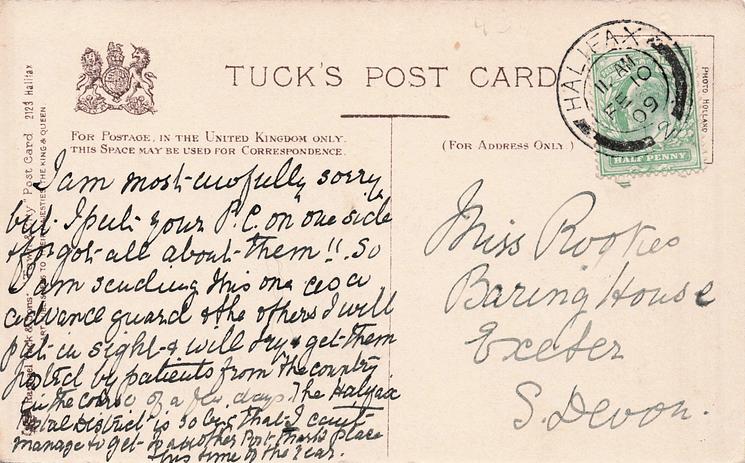 TUCK'S POST CARD
FOR POSTAGE, IN THE UNITED KINGDOM ONLY.
THIS SPACE MAY BE USED FOR CORRESPONDENCE.
(FOR ADDRESS ONLY.)
HALIFAX
11 AM
FE 10
09
HALF PENNY
PHOTO HOLLAND
Post Card 2123 Halifax
THE KING & QUEEN
I am most awfully sorry
but I put your P.C. on one side
& forgot all about them!! So
I am sending this one as a
advance guard & the others I will
put in sight & will try & get them
posted by patients from the country
in the course of a few days. The Halifax
Postal District is so big that I can't
manage to get to another Post mark place
this time of the year.
Miss Rookes
Baring House
Exeter
S. Devon.